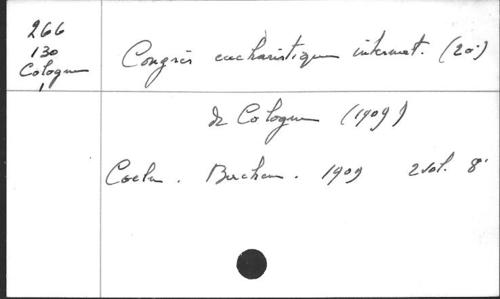 266
130
Cologne
Congrès eucharistique internat. (20:)
de Cologne (1909)
Coeln. Bachem. 1909 2 vol. 8°